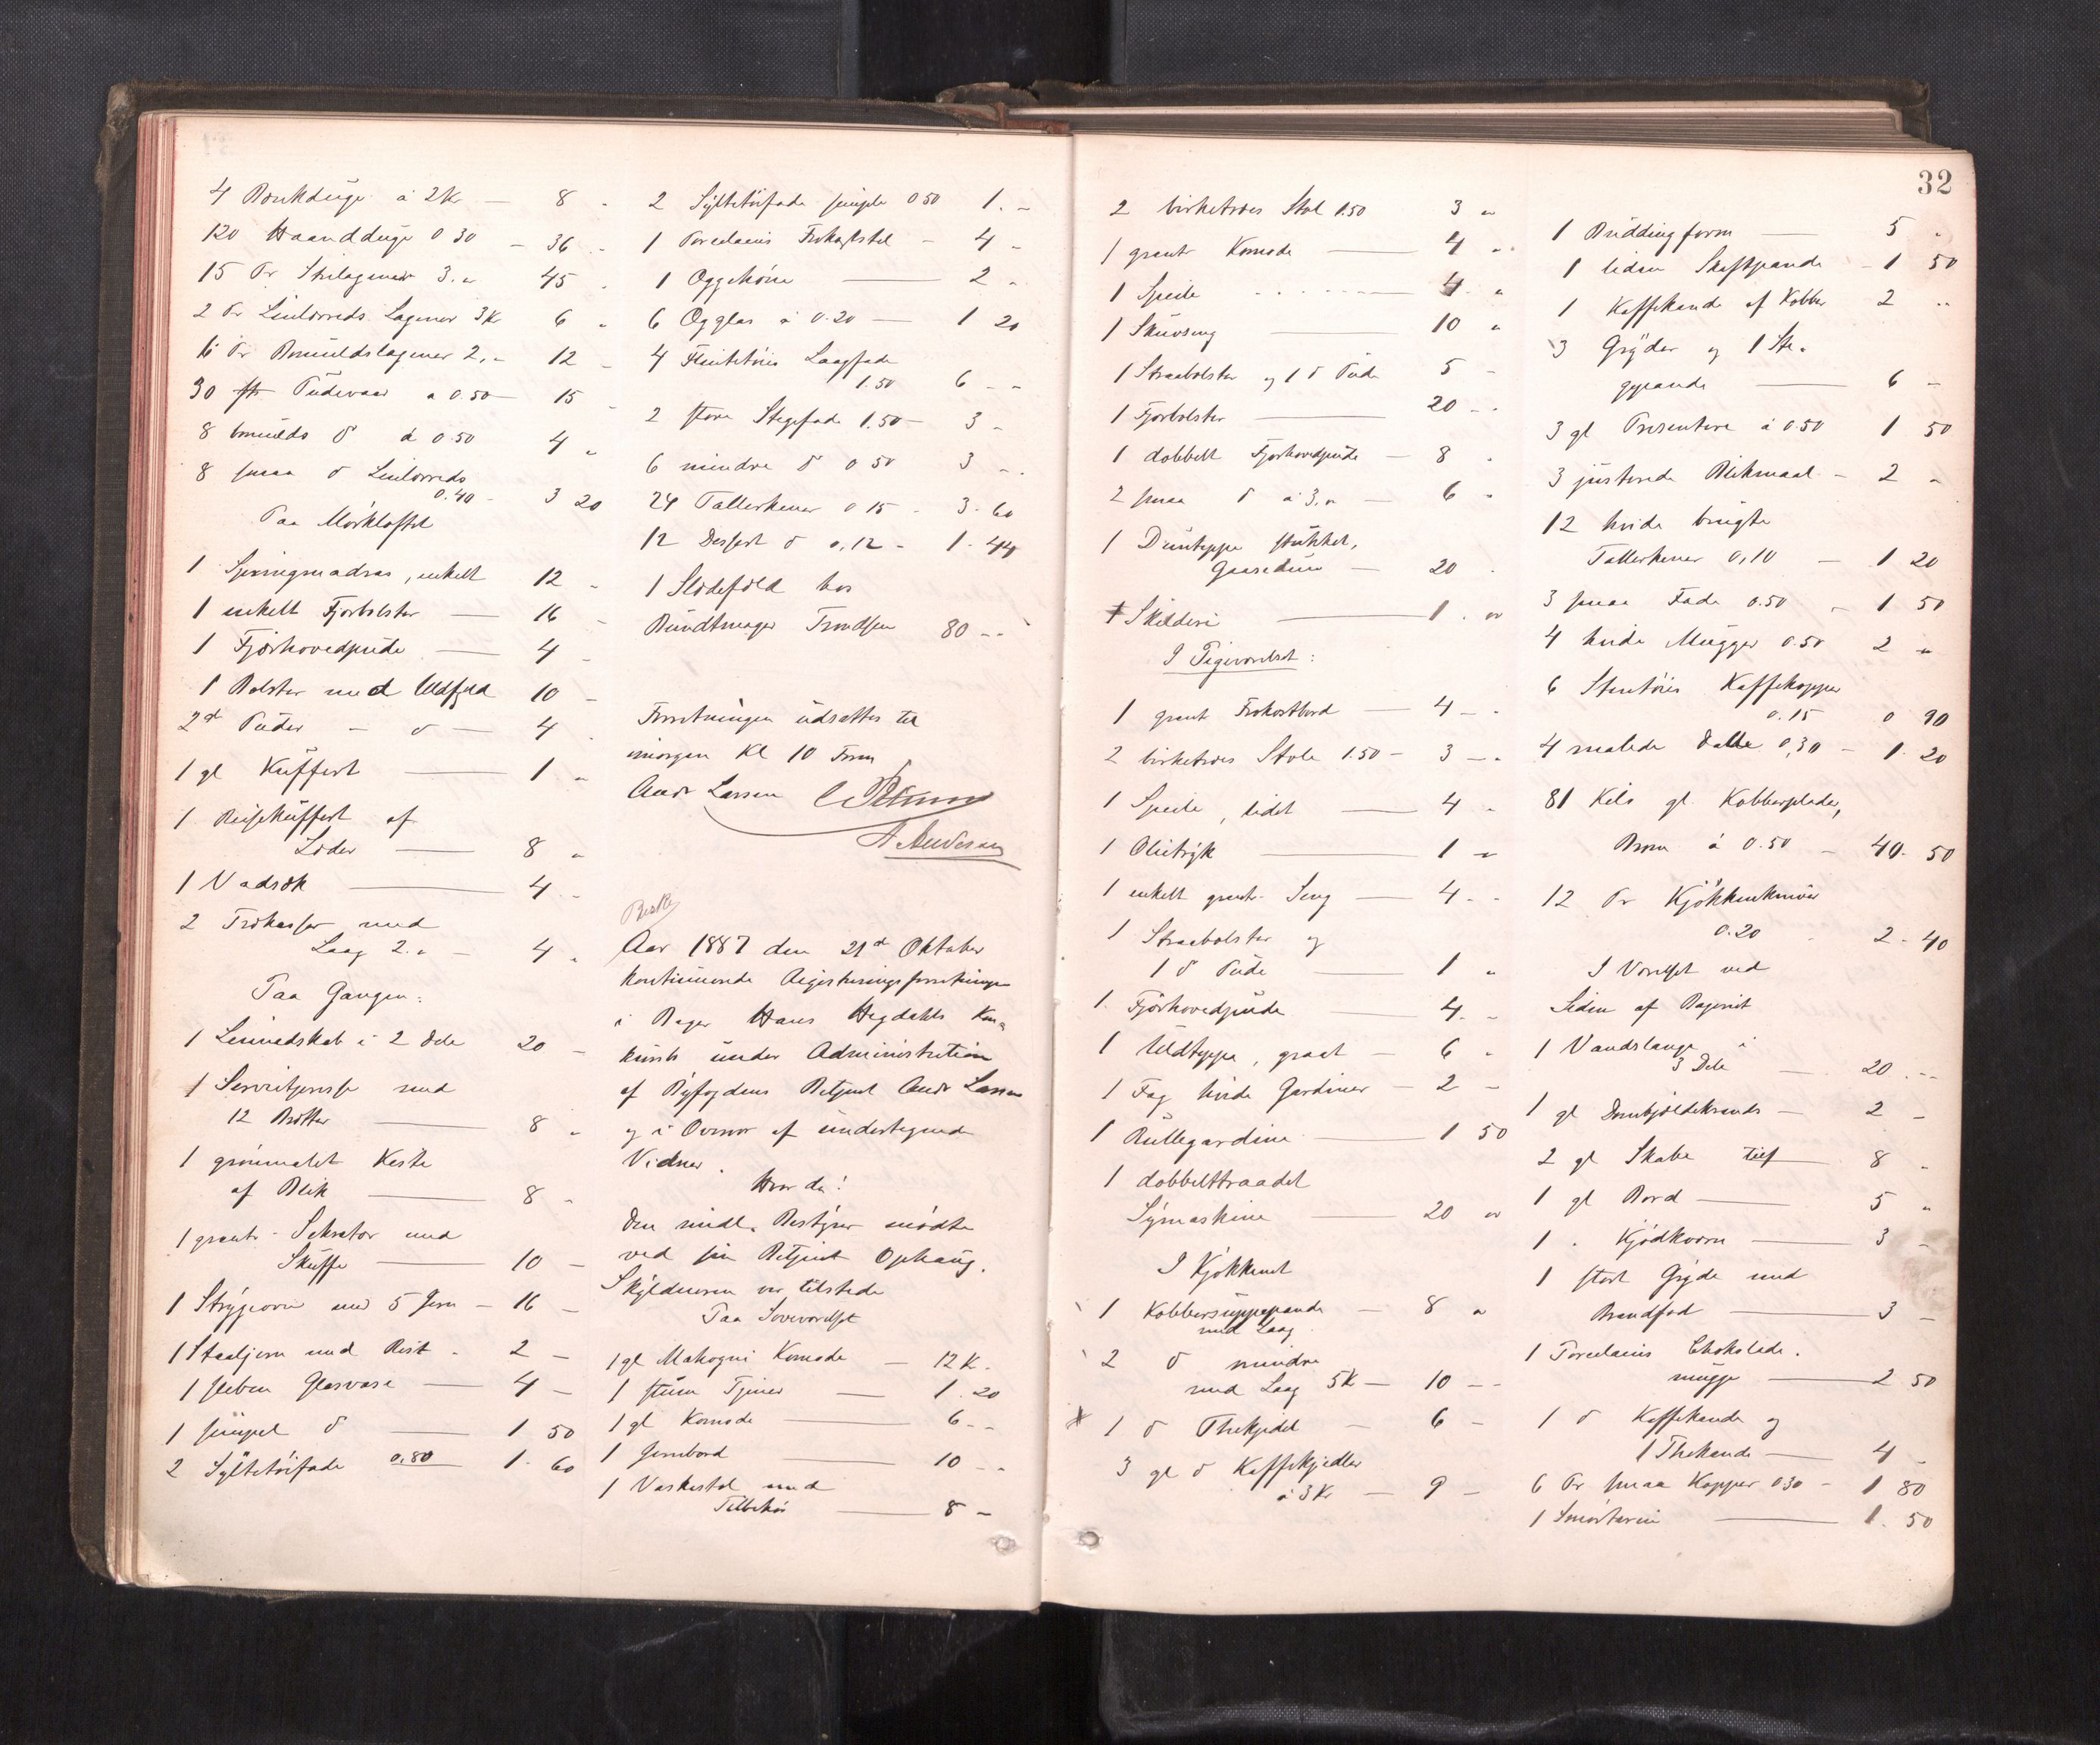 4 Bordduge á 2 Kr — 8 "
120 Haandduge 0 30 — 36 "
15 Pr Strilagener 3. " 45 "
2 Pr Linlærreds Lagener 3 Kr 6 "
6 Pr Bomuldslagener 2, " 12 "
30 Pudevaar a 0.50 — 15 "
8 bomulds d á 0.50 4 "
8 smaa d Linlærreds
0.40 — 3 20
Paa Mørkloftet
1 Springmadras, enkelt 12 "
1 enkelt Fjærbolster — 16 "
1 Fjærhovedpude — 4 "
1 Bolster med Uldfyld 10 "
2 Puder — d — 4 "
1 gl Kuffert — 1 "
1 Reisekuffert af
Læder — 8 "
1 Vadsæk — 4 "
2 Trækasser med
Laag 2. " — 4 "
Paa Gangen:
1 Linnedskab i 2 Dele 20 "
1 Servietpresse med
12 Brætter — 8 "
1 grønmalet Kiste
af Blik — 8 "
1 grant. Sekretær med
Skuffe — 10 "
1 Strygeovn med 5 Jern — 16 "
1 Staaljern med Rist — 2 "
1 sleben Glasvase — 4 "
1 simpel d — 1 50
2 Syltetøifade 0,80 1. 60
2 Syltetøifade simple 0 50 1. "
1 Porcelains Frokoststel — 4 "
1 Æggehøne — 2 "
6 Ægglas á 0.20 — 1 20
4 Flintetøis Laagfade
1.50 6 "
2 store Stegefade 1.50 — 3 "
6 mindre d 0 50 3 "
24 Tallerkener 0 15 — 3. 60
12 Dessert d 0,12 — 1. 44
1 Slædefæld hos
Bundtmager Trondsen 80 "
Forretningen udsattes til
imorgen Kl 10 Form
Andr Larsen
A. Andersen
Aar 1887 den 21de Oktober
kontinuerede Registreringsforretningen
i Bager Hans Hegdahls Kon-
kursbo under Administration
af Byfogdens Betjent Andr Larsen
og i Overvær af undertegnede
Vidner.
Hvorda:
Den midl. Bestyrer mødte
ved sin Betjent Ophaug.
Skyldneren var tilstede
Paa Soveværelset
1 gl Mahogni Komode — 12 K.
1 Tjener — 1. 20
1 gl Komode — 6 "
1 Jernbord — 10 "
1 Vaskestol med
Tilbehør — 8 "
32
2 birketræes Stole 1.50 3 "
1 grant. Komode — 4 "
1 Speile — 4 "
1 Skuvseng — 10 "
1 Straabolster og 1 d Pude 5 "
1 Fjærbolster — 20 "
1 dobbelt Fjærhovedpude — 8 "
2 smaa d á 3. " — 6 "
1 Duntæppe stukket,
Gaasedun — 20 "
1 Skilderi — 1 "
I Pigeværelset:
1 grant Frokostbord — 4 "
2 birketræes Stole 1.50 — 3 "
1 Speile, lidet — 4 "
1 Olietryk — 1 "
1 enkelt grant. Seng — 4 "
1 Straabolster og
1 d Pude — 1 "
1 Fjærhovedpude — 4 "
1 Uldtæppe, graat — 6 "
1 Fag hvide Gardiner — 2 "
1 Rullegardin — 1 50
1 dobbelttraadet
Symaskine — 20 "
I Kjøkkenet
1 Kobbersuppepande — 8 "
med Laag
2 d mindre
med Laag 5 K — 10 "
1 d Thekjedel — 6 "
3 gl d Kaffekjedler
á 3 Kr — 9 "
1 Puddingform — 5 "
1 liden Skaftpande — 1 50
1 Kaffekande af Kobber 2 "
3 Gryder og 1 Ste-
gepande — 6 "
3 gl Presentere á 0.50 1 50
3 justerede Blikmaal — 2 "
12 hvide brugte
Tallerkener 0,10 — 1 20
3 smaa Fade 0.50 — 1 50
4 hvide Mugger 0.50 2 "
6 Stentøies Kaffekopper
0.15 0 90
4 malede Dalle 0,30 — 1. 20
81 Kilo gl. Kobberplader,
Brom á 0.50 — 40. 50
12 Pr Kjøkkenknive
0.20 — 2. 40
I Værelset ved
Siden af Bageriet
1 Vandslange i
3 Dele — 20 "
1 gl Dombjældekrands — 2 "
2 gl Skabe — 8 "
1 gl Bord — 5 "
1 " Kjødkværn — 3 "
1 stort Gryde med
Brandfod — 3 "
1 Porcelains Chokolade-
mugge — 2 50
1 d Kaffekande og
1 Thekande — 4 "
6 Pr smaa Kopper 0 30 — 1 80
1 Smørterrin — 1. 50